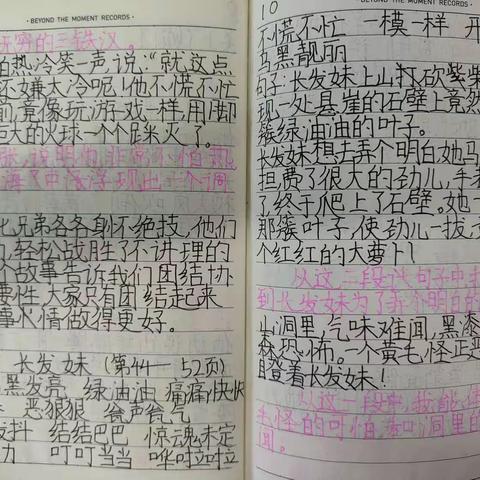 · BEYOND THE MOMENT RECORDS ·
穷的三铁汉。
怕热冷笑一声说:"就这点
还嫌太冷呢!他不慌不忙
前,竟像玩游戏一样,用脚
巨大的火球一个个踩灭了。
张,说明他非常不怕热,
海又中浮现出一个调
七兄弟各各身不绝技,他们
力,轻松战胜了不讲理的
个故事告诉我们团结协
要性,大家只有团结起来
事情做得更好。
长发妹(第44—52页)
黑发亮 绿油油 痛痛快快
恶狠狠 瓮声瓮气
抖 结结巴巴 惊魂未定
力 叮叮当当 哗啦啦
· BEYOND THE MOMENT RECORDS ·
10
不慌不忙 一模一样 开
乌黑靓丽
句子:长发妹上山打砍紫柴
现,一处悬崖的石壁上竟然
簇绿油油的叶子。
长发妹想去弄个明白,她马
担,费了很大的劲儿,手
了,终于爬上了石壁。她一
那簇叶子,使劲儿一拔,
个红红的大萝卜!
从这二段话句子中
到长发妹为了弄个明白的
山洞里,气味难闻,黑漆
森恐怖。一个黄毛怪正恶
瞪着长发妹!
从这一段中,我能体
毛怪的可怕和洞里的
闻。